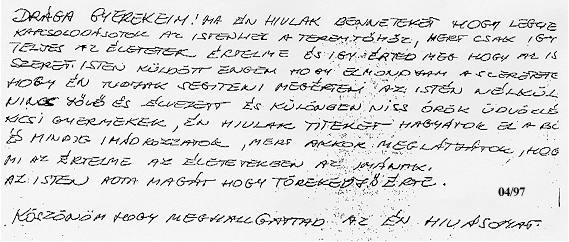 DRÁGA GYEREKEIM! MA ÉN HIVLAK BENNETEKET HOGY LEGYE
KAPSOLODÁSOTOK AZ ISTENHEZ A TEREMTŐHÖZ, MERT CSAK IGY
TELJES AZ ÉLETETEK ÉRTELME ÉS IGY ÉRTED MEG HOGY AZ IS
SZERET. ISTEN KÜLDÖTT ENGEM HOGY ELMONDJAM A SZERETETE
HOGY ÉN TUDJAK SEGITENI MEGÉRTENI AZ ISTEN NÉLKÜL
NINCS JÖVŐ ÉS ÉLVEZETT ÉS KÜLÖNGEN NISS ÖRÖK ÜDVÖZLÉ
KICSI GYERMEKEK, ÉN HIVLAK TITEKET HAGYÁTOK EL A BŰ
ÉS MINDIG IMÁDKOZZATOK, MERT AKKOR MEGLÁTJÁTOK, HOG
MI AZ ÉRTELME AZ ÉLETETEKBEN AZ IMÁNAK.
AZ ISTEN ADTA MAGÁT HOGY TÖREKEDJ ŐÉRTE.
04/97
KÖSZÖNÖM HOGY MEGHALLGATTAD AZ ÉN HIVÁSOMAT.